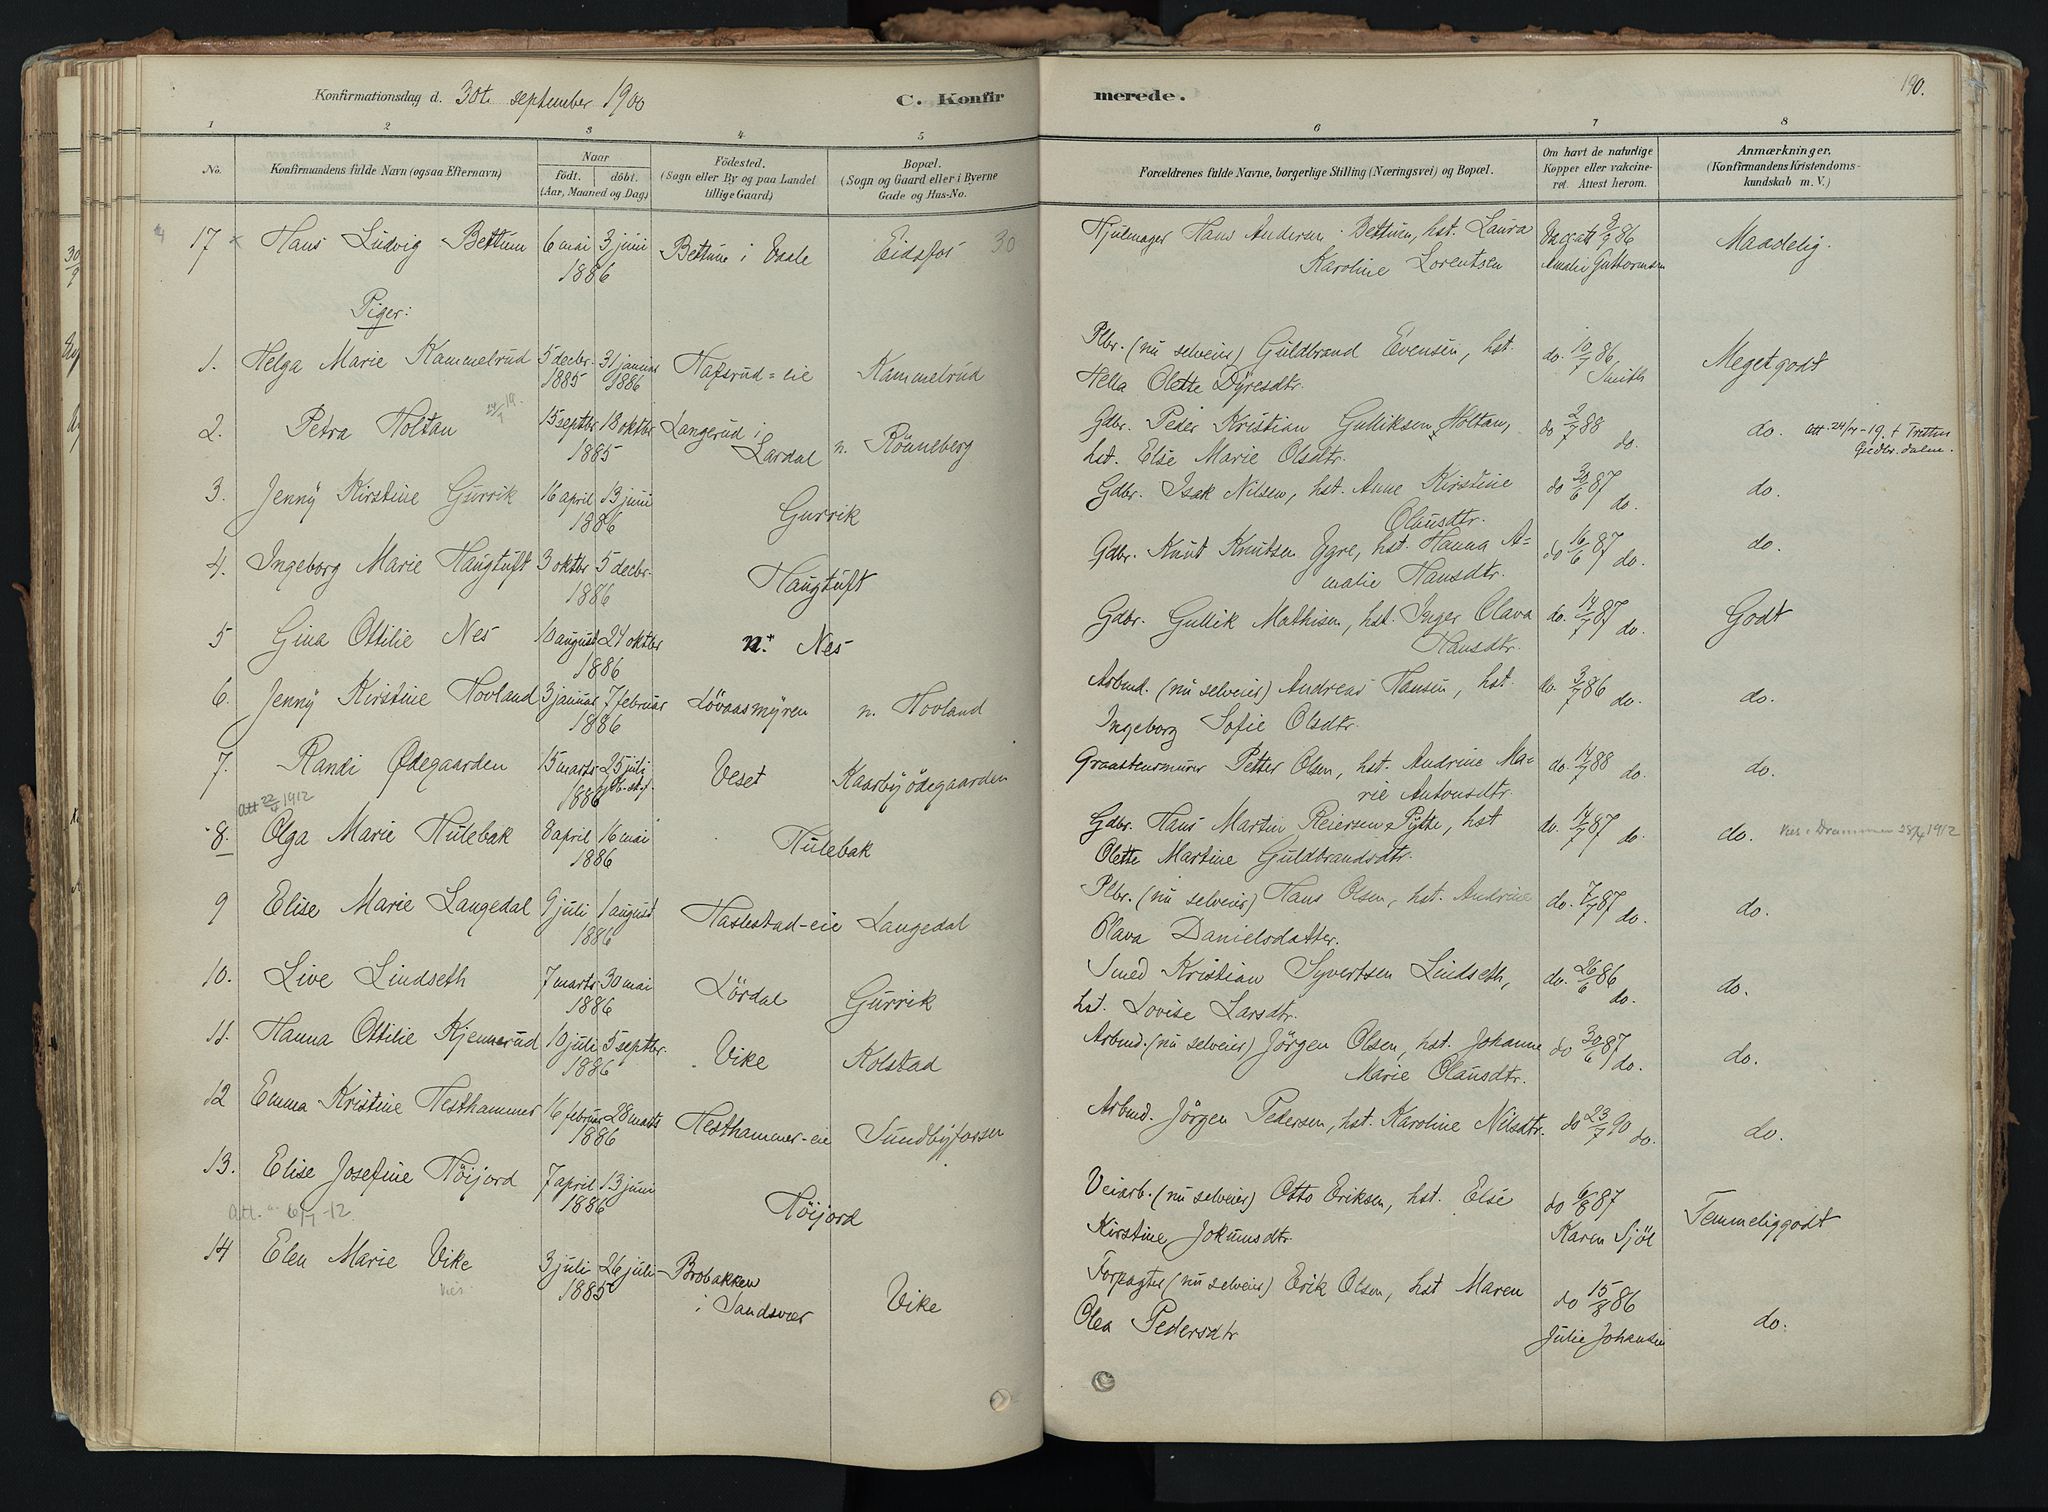 Konfirmationsdag d. 30te september 1900 C. Konfirmerede. 190.
1 2 3 4 5 6 7 8
No. Konfirmandens fulde Navn (ogsaa Efternavn) Naar født. døbt. (Aar, Maaned og Dag) Fødested. (Sogn eller By og paa Landet tillige Gaard) Bopæl. (Sogn og Gaard eller i Byerne Gade og Hus-No. Forældrenes fulde Navne, borgerlige Stilling (Næringsvei) og Bopæl. Om havt de naturlige Kopper eller vakcineret. Attest herom. Anmærkninger. (Konfirmandens Kristendomskundskab m. V.)
17 Hans Ludvig Bettum 6 mai 3 juni 1886 Bettum i Vaale Eidsfos 30 Hjulmager Hans Andersen Bettum, hst. Laura Karoline Lorentsen 9/9 86 Amalie Guttormsen Maadelig.
Piger:
1. Helga Marie Kammelrud 5 decbr. 1885 31 januar 1886 Hafsrud-eie Kammelrud Plbr. (nu selveier) Guldbrand Evensen, hst. Helea Olette Dyresdtr. do. 10/7 86 Smith Meget godt
2. Petra Holtan 15 septbr 18 oktbr 1885 Langerud i Lardal n. Rønneberg Gdbr. Peder Kristian Gulliksen Holtan, hst. Else Marie Olsdtr. do 2/7 88 do. do. Att. 24/4-19. t Tretten Gudbr.dalen.
3. Jenny Kirstine Gurrik 16 april 13 juni 1886 Gurrik Gdbr. Isak Nilsen, hst. Anne Kirstine Olausdtr. do 30/6 87 do. do.
4. Ingeborg Marie Haugtuft 3 oktbr 5 decbr. 1886 Haugtuft Gdbr. Knut Knutsen Ygre, hst. Hanna Amalie Hansdtr. do 16/6 87 do. do.
5 Gina Ottilie Nes 10 august 24 oktbr 1886 n. Nes Gdbr. Gullik Mathisen, hst. Inger Olava Hansdtr. do. 14/7 87 do. Godt
6. Jenny Kirstine Hovland 3 januar 7 februar 1886 Løvaasmyren n. Hovland Arbmd. (nu selveier) Andreas Hansen, hst. Ingeborg Sofie Olsdtr. do. 3/7 86 do. do.
7. Randi Ødegaarden 15 marts 25 juli 1886 Veset Kaarbyødegaarden Graastensmurer Petter Olsen, hst. Andrine Marie Antonsdtr. do. 14/7 88 do. do.
Att 22/4 1912
8. Olga Marie Hulebak 8 april 16 mai 1886 Hulebak Gdbr. Hans Martin Reiersen Pytte, hst Olette Martine Guldbrandsdtr. do. 14/7 87 do. do. Drammen 28/4 1912
9 Elise Marie Langedal 9 juli 1 august 1886 Haslestad-eie Langedal Plbr. (nu selveier) Hans Olsen, hst. Andrine Olava Danielsdatter. do. 7/7 87 do. do.
10. Live Lindseth 7 marts 30 mai 1886 Lørdal Gurrik Smed Kristian Syvertsen Lindseth, hst. Lovise Larsdtr. do. 26/6 86 do. do.
11. Hanna Ottilie Kjennerud 10 juli 5 septbr. 1886 Vike Kolstad Arbmd. (nu selveier) Jørgen Olsen, hst. Johanne Marie Olausdtr. do 30/6 87 do. do.
12 Emma Kristine Hesthammer 16 februar 28 marts 1886 Hesthammer-eie Sundbyfossen Arbmd. Jørgen Pedersen, hst. Karoline Nilsdtr. do 23/7 90 do. do.
13. Elise Josefine Høijord 7 april 13 juni 1886 Høijord Veiarb. (nu selveier) Otto Eriksen, hst. Else Kirstine Jokumsdtr. do 6/8 87 Karen Sjøl Temmelig godt
Att. 6/7-12
14 Elen Marie Vike 3 juli 26 juli 1885 Brobakken i Sandsvær Vike Forpagter (nu selveier) Erik Olsen, hst Maren Olea Pedersdtr do 15/8 86 Julie Johansen do.